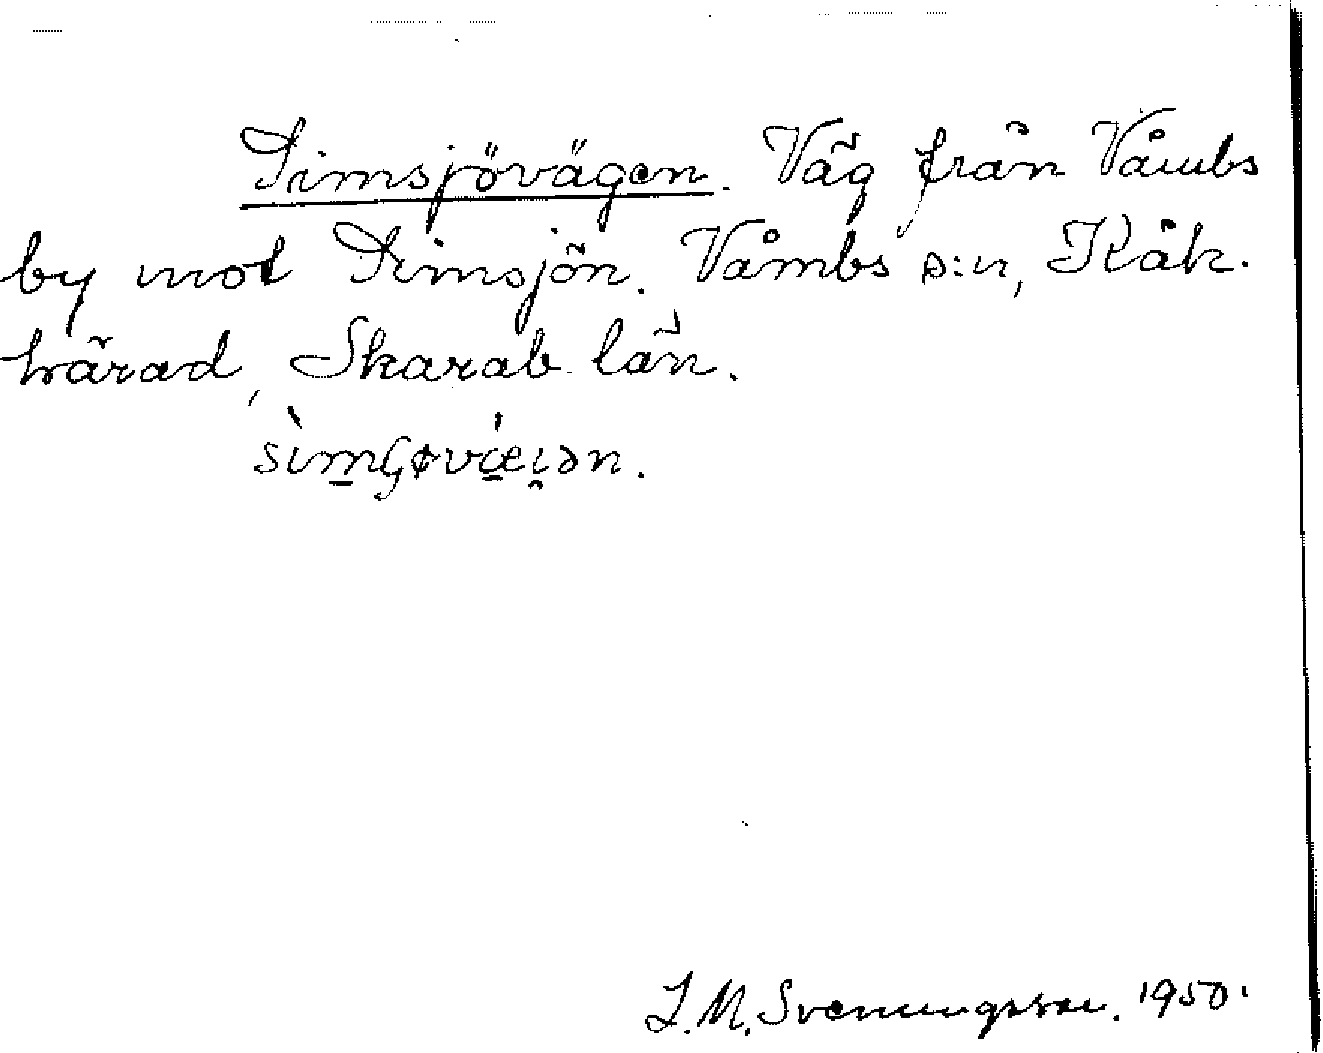 Simsjövägen. Väg från Våmbs
by mot Simsjön. Våmbs s:n, Kåk.
härad, Skarab. län.
J.M. Svenungsson. 1950.